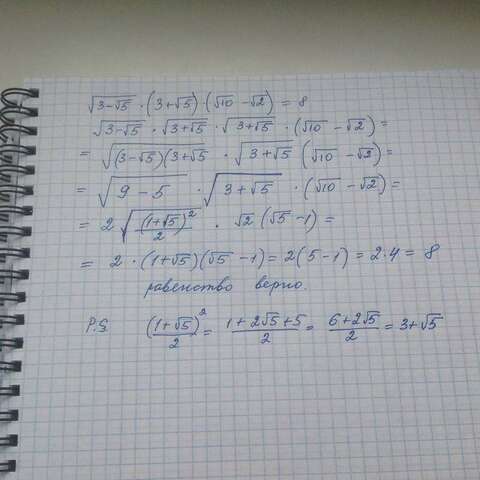 √(3-√5) · (3+√5) · (√10 - √2) = 8
√(3-√5) · √(3+√5) · √(3+√5) · (√10 - √2) =
= √((3-√5)(3+√5) · √(3+√5) (√10 - √2) =
= √(9 - 5) · √(3+√5) · (√10 - √2) =
= 2 √((1+√5)²/2) · √2 (√5 - 1) =
= 2 · (1+√5)(√5 - 1) = 2(5 - 1) = 2·4 = 8
равенство верно.
P.S. (1+√5)²/2 = (1+2√5+5)/2 = (6+2√5)/2 = 3+√5